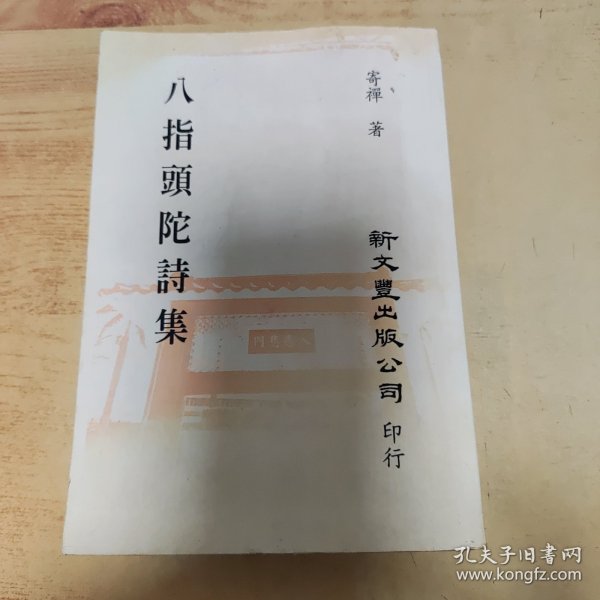 八指頭陀詩集
寄禪 著
新文豐出版公司 印行
孔夫子旧书网
www.kongfz.com